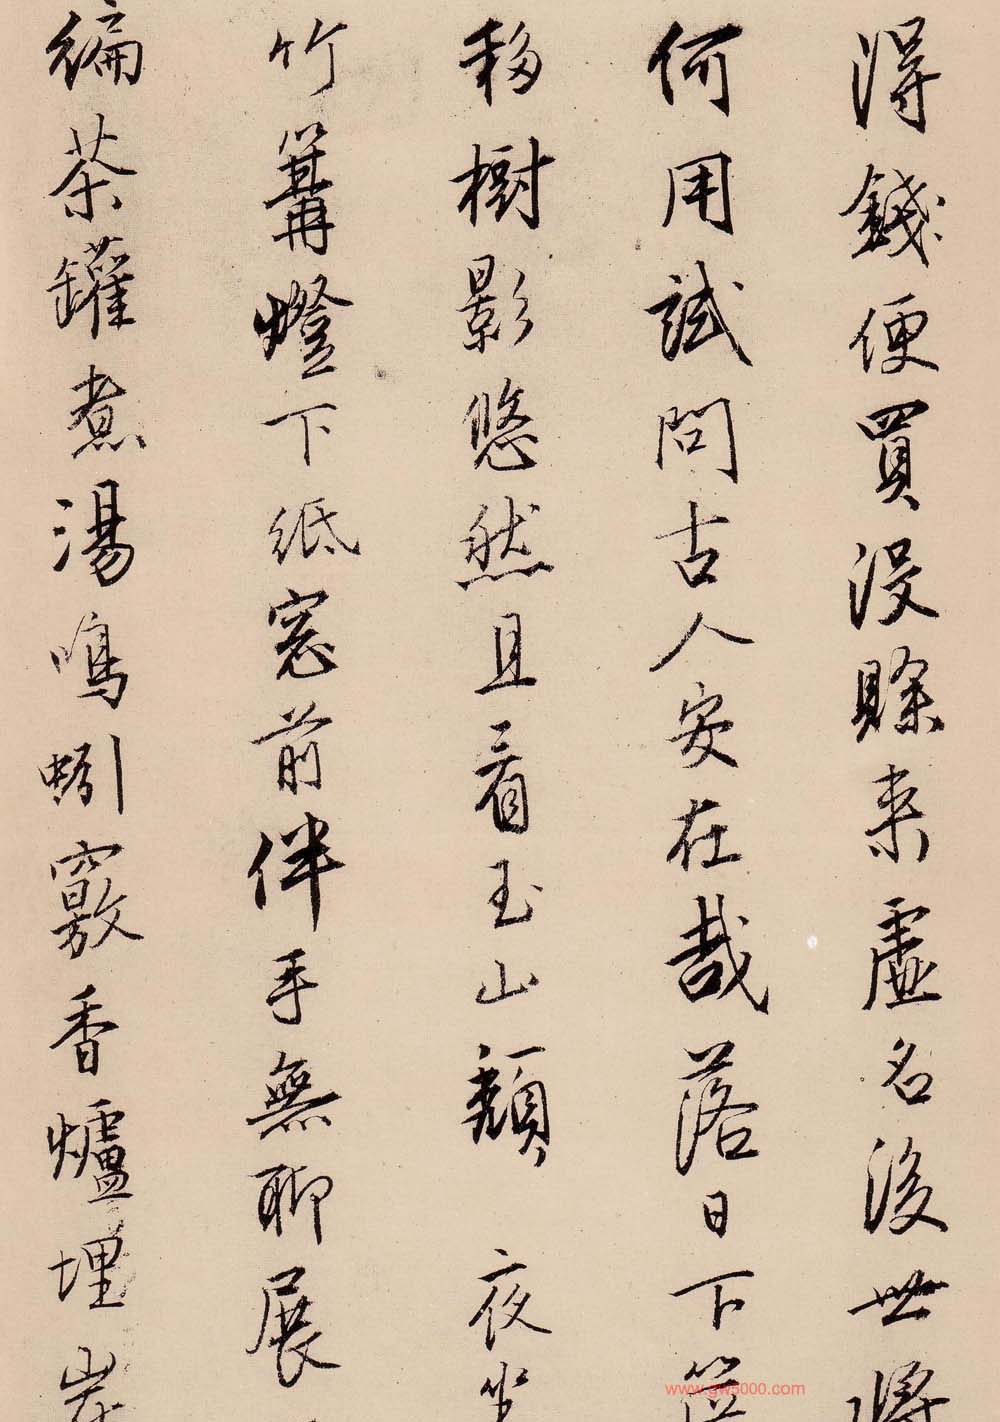 得錢便買沒賒来虛名後世將
何用試問古人安在哉落日下簷
移樹影悠然且看玉山頹 夜坐
竹篝燈下紙窓前伴手無聊展
編茶罐煮湯鳴蚓竅香爐埋炭
www.gw5000.com